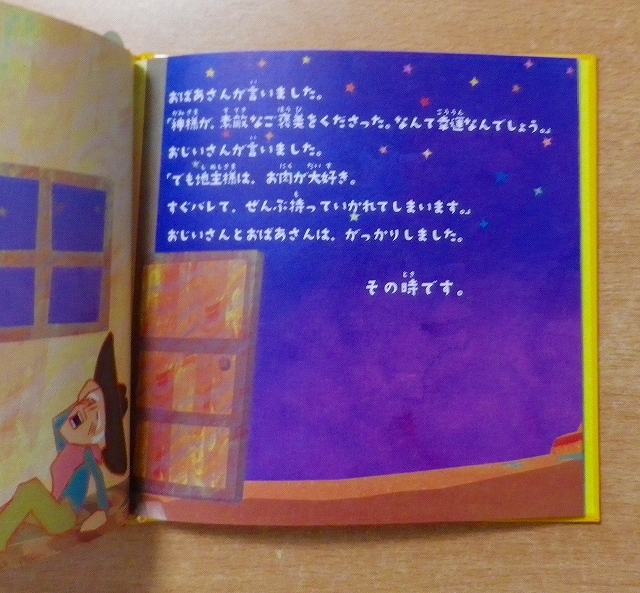 おばあさんが言いました。
「神様が、素敵なご褒美をくださった。なんて幸運なんでしょう。」
おじいさんが言いました。
「でも地主様は、お肉が大好き。
すぐバレて、ぜんぶ持っていかれてしまいます。」
おじいさんとおばあさんは、がっかりしました。
その時です。